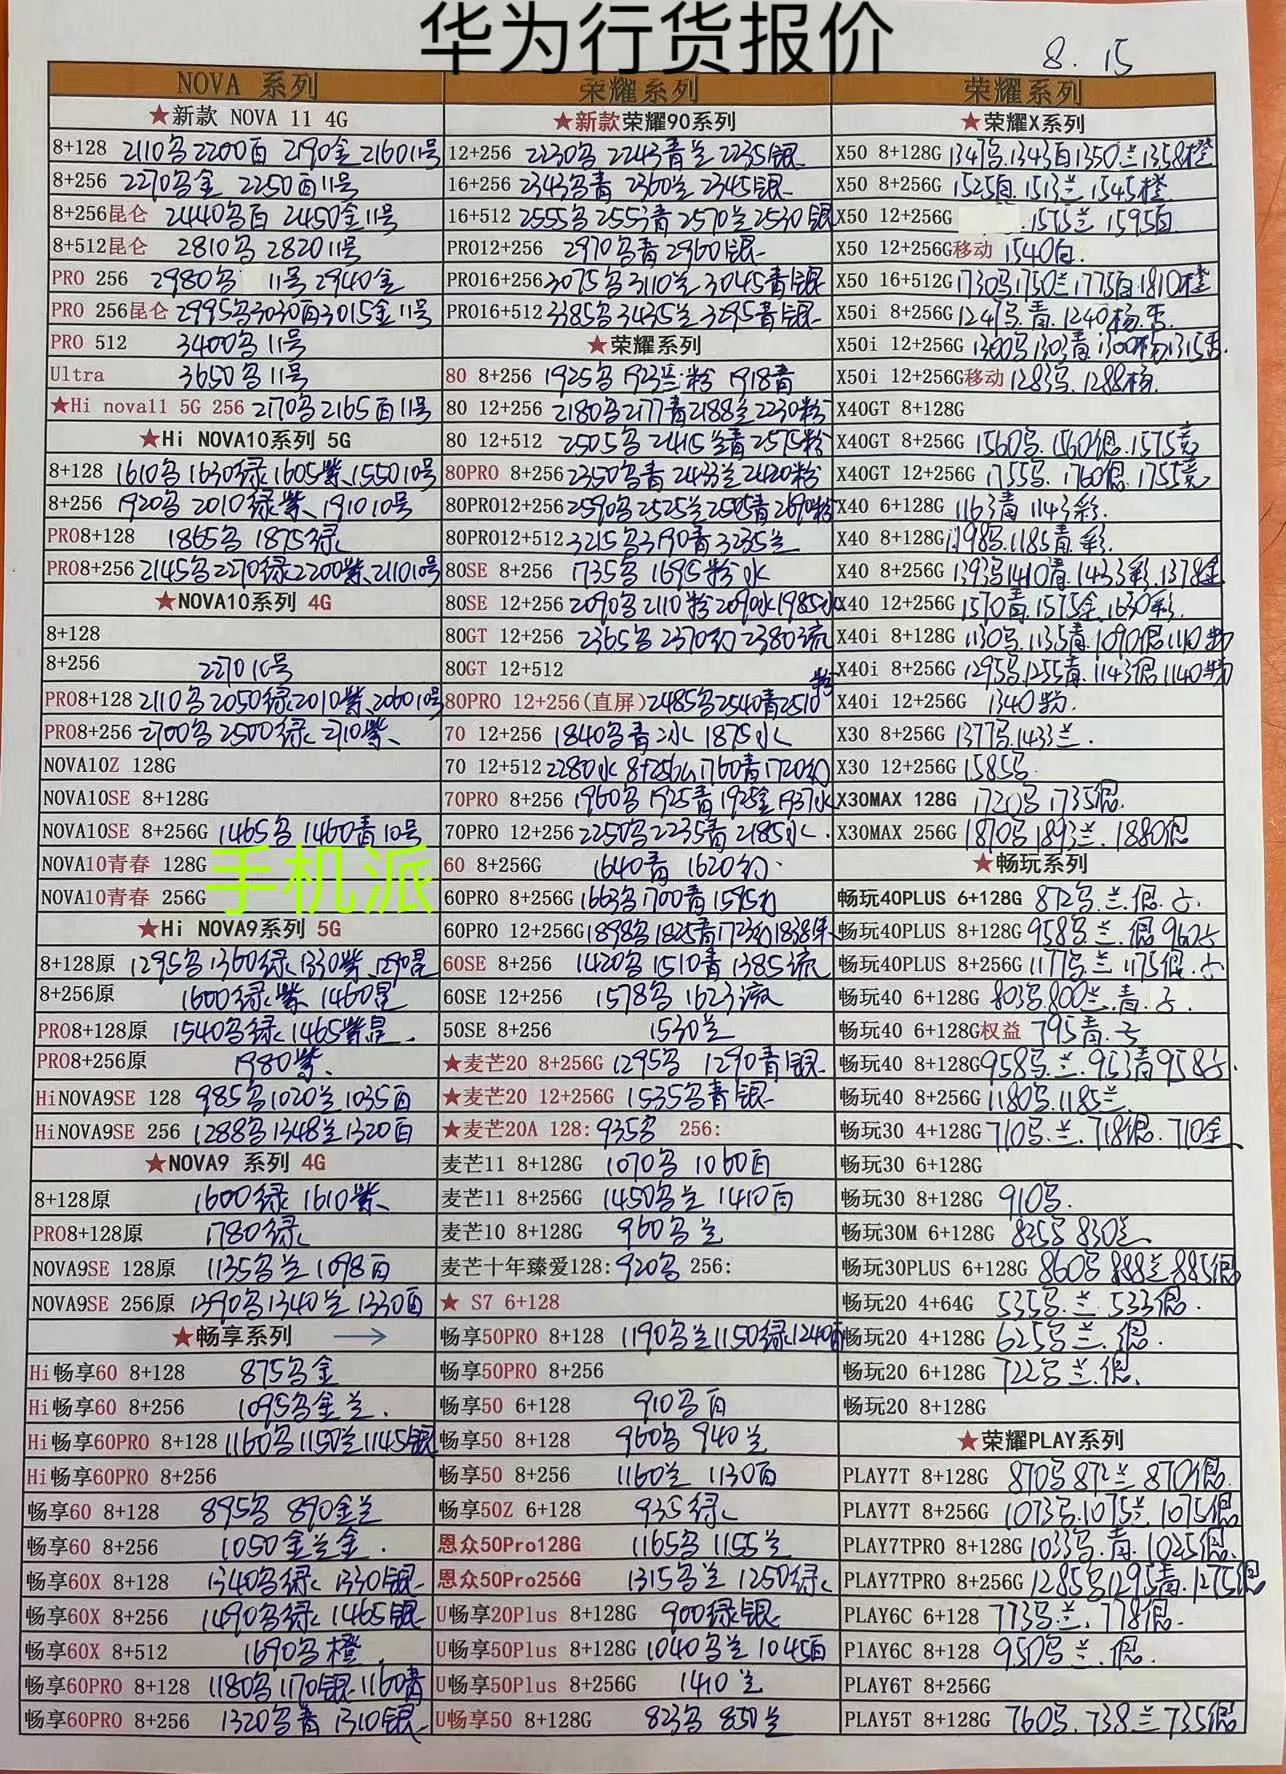 华为行货报价
8.15
NOVA 系列
★新款 NOVA 11 4G
8+128 2110乌 2200百 2190金 2160 11号
8+256 2270乌金 2250百11号
8+256昆仑 2440乌百 2450金11号
8+512昆仑 2810乌 2820 11号
PRO 256 2980乌 11号 2940金
PRO 256昆仑 2995乌3030百3015金11号
PRO 512 3400乌 11号
Ultra 3650乌 11号
★Hi nova11 5G 256 2170乌 2165百 11号
★Hi NOVA10系列 5G
8+128 1610乌 1630绿 1605紫、1550 10号
8+256 1920乌 2010绿紫、1910 10号
PRO8+128 1865乌 1875绿
PRO8+256 2145乌2270绿2200紫、2110 10号
★NOVA10系列 4G
8+128
8+256 2270 10号
PRO8+128 2110乌 2050绿2010紫、2060 10号
PRO8+256 2700乌 2500绿 2710紫、
NOVA10Z 128G
NOVA10SE 8+128G
NOVA10SE 8+256G 1465乌 1460青 10号
NOVA10青春 128G
手机派
NOVA10青春 256G
★Hi NOVA9系列 5G
8+128原 1295乌 1360绿 1330紫、1290昆
8+256原 1600绿紫、1460昆
PRO8+128原 1540乌绿 1465紫昆.
PRO8+256原 1980紫、
HiNOVA9SE 128 985乌 1020兰 1035百
HiNOVA9SE 256 1288乌 1348兰 1320百
★NOVA9 系列 4G
8+128原 1600绿 1610紫、
PRO8+128原 1780绿
NOVA9SE 128原 1135乌兰 1098百
NOVA9SE 256原 1390乌1340兰 1330百
★畅享系列 →
Hi畅享60 8+128 875乌金
Hi畅享60 8+256 1095乌金兰.
Hi畅享60PRO 8+128 1160乌 1150兰 1145银
Hi畅享60PRO 8+256
畅享60 8+128 895乌 890金兰
畅享60 8+256 1050金兰金.
畅享60X 8+128 1340乌绿 1330银
畅享60X 8+256 1490乌绿 1465银
畅享60X 8+512 1690乌橙.
畅享60PRO 8+128 1180乌 1170银 1160青
畅享60PRO 8+256 1320乌青 1310银
荣耀系列
★新款荣耀90系列
12+256 2230乌 2243青兰 2235银
16+256 2343乌青 2360兰 2345银
16+512 2555乌 2555青 2570兰 2530银
PRO12+256 2970乌青 2960银
PRO16+256 3075乌 3110兰 3045青银
PRO16+512 3385乌 3435兰 3295青银
★荣耀系列
80 8+256 1925乌 1923兰粉 1918青
80 12+256 2180乌 2177青 2188兰 2230粉
80 12+512 2505乌 2415兰青 2575粉
80PRO 8+256 2350乌青 2433兰 2420粉
80PRO12+256 2590乌 2525兰 2505青 2690粉
80PRO12+512 3215乌 3190青 3235兰
80SE 8+256 1735乌 1695粉水
80SE 12+256 2090乌 2110粉 2090冰 1985水
80GT 12+256 2365乌 2370幻 2380流
80GT 12+512
80PRO 12+256(直屏) 2485乌 2540青 2510粉
70 12+256 1840乌青冰 1875水
70 12+512 2280水 1760青 1720幻
70PRO 8+256 1960乌 1925青 1925金 1937水
70PRO 12+256 2250乌 2235青 2185水.
60 8+256G 1640青 1620幻.
60PRO 8+256G 1663乌 1700青 1595幻
60PRO 12+256G 1898乌 1825青 1723幻 1838朱
60SE 8+256 1420乌 1510青 1385流
60SE 12+256 1578乌 1623流
50SE 8+256 1530兰
★麦芒20 8+256G 1295乌 1290青银
★麦芒20 12+256G 1535乌青银
★麦芒20A 128: 935乌 256:
麦芒11 8+128G 1070乌 1060百
麦芒11 8+256G 1450乌兰 1410百
麦芒10 8+128G 960乌兰
麦芒十年臻爱128: 920乌 256:
★ S7 6+128
畅享50PRO 8+128 1190乌兰1150绿1240百
畅享50PRO 8+256
畅享50 6+128 910乌百
畅享50 8+128 960乌 940兰
畅享50 8+256 1160兰 1130百
畅享50Z 6+128 935绿
恩众50Pro128G 1165乌 1155兰
恩众50Pro256G 1315乌兰 1250绿
U畅享20Plus 8+128G 900绿银
U畅享50Plus 8+128G 1040乌兰 1045百
U畅享50Plus 8+256G 1410兰
U畅享50 8+128G 823乌 850兰
荣耀系列
★荣耀X系列
X50 8+128G 1347乌.1343白1350.兰1358橙
X50 8+256G 1525白.1513兰.1545橙
X50 12+256G .1575兰 1595白
X50 12+256G移动 1540白.
X50 16+512G 1730乌1750兰1775白1810橙
X50i 8+256G 1241乌.青.1240杨.杏.
X50i 12+256G 1300乌1303青.1300杨1315杏.
X50i 12+256G移动 1283乌.1288杨.
X40GT 8+128G
X40GT 8+256G 1560乌.1560银.1575竞
X40GT 12+256G 1755乌.1760银.1755竞
X40 6+128G 1163青 1143彩.
X40 8+128G 1198乌.1185青.彩.
X40 8+256G 1393乌1410青.1433彩.1378金
X40 12+256G 1570青.1575金.1630彩.
X40i 8+128G 1130乌.1135青.1090银1110粉
X40i 8+256G 1295乌.1255青.1143银1140粉
X40i 12+256G 1340粉.
X30 8+256G 1377乌.1433兰.
X30 12+256G 1585乌
X30MAX 128G 1720乌 1735银.
X30MAX 256G 1870乌1893兰.1880银
★畅玩系列
畅玩40PLUS 6+128G 872乌.兰.银.子.
畅玩40PLUS 8+128G 958乌.兰.银 960子
畅玩40PLUS 8+256G 1177乌.兰 1175银.子
畅玩40 6+128G 803乌.800兰.青.子
畅玩40 6+128G权益 795青.子
畅玩40 8+128G 958乌.兰.953青958子.
畅玩40 8+256G 1180乌.1185兰
畅玩30 4+128G 710乌.兰.718银.710金
畅玩30 6+128G
畅玩30 8+128G 910乌.
畅玩30M 6+128G 825乌 830兰
畅玩30PLUS 6+128G 860乌 888兰 885银
畅玩20 4+64G 535乌.兰.533银.
畅玩20 4+128G 625乌兰.银.
畅玩20 6+128G 722乌兰.银.
畅玩20 8+128G
★荣耀PLAY系列
PLAY7T 8+128G 870乌 872兰 870银.
PLAY7T 8+256G 1073乌.1075兰.1075银
PLAY7TPRO 8+128G 1033乌.青.1025银.
PLAY7TPRO 8+256G 1285乌1295青.1275银
PLAY6C 6+128 773乌兰.778银.
PlAY6C 8+128 950乌兰.银.
PLAY6T 8+256G
PLAY5T 8+128G 760乌.738兰735银